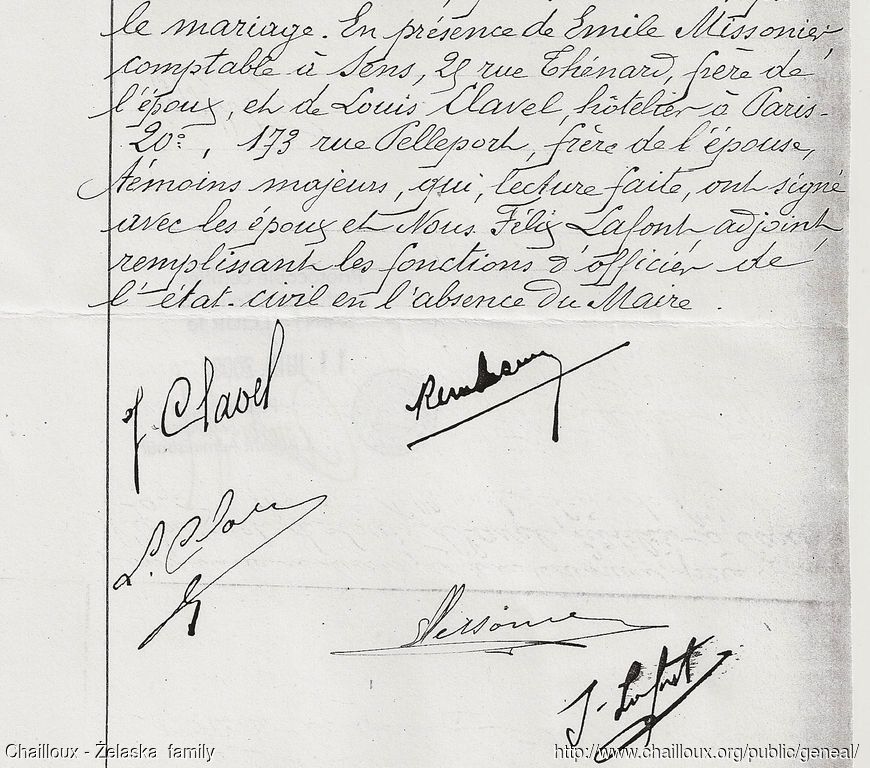 le mariage. En présence de Emile Missonier,
comptable à Sens, rue Thénard, frère de
l'époux, et de Louis Clavel, hôtelier à Paris-
20e, 173 rue Pelleport, frère de l'épouse,
témoins majeurs, qui, lecture faite, ont signé
avec les époux et Nous. Félix Lafont adjoint
remplissant les fonctions d'officier de
l'état-civil en l'absence du Maire.
Clavel
L. Clavel
J. Lafont
Chailloux - Żelaska family
http://www.chailloux.org/public/geneal/